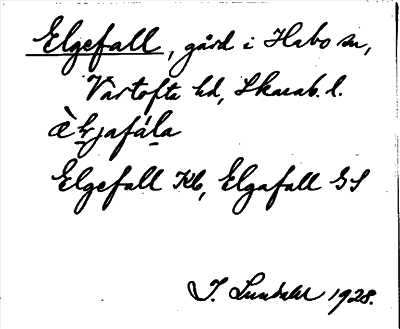 Elgefall, gård i Habo sn,
Vartofta hd, Skarab. l.
Elgefall Kb, Elgafall GS
I. Lundahl 1928.